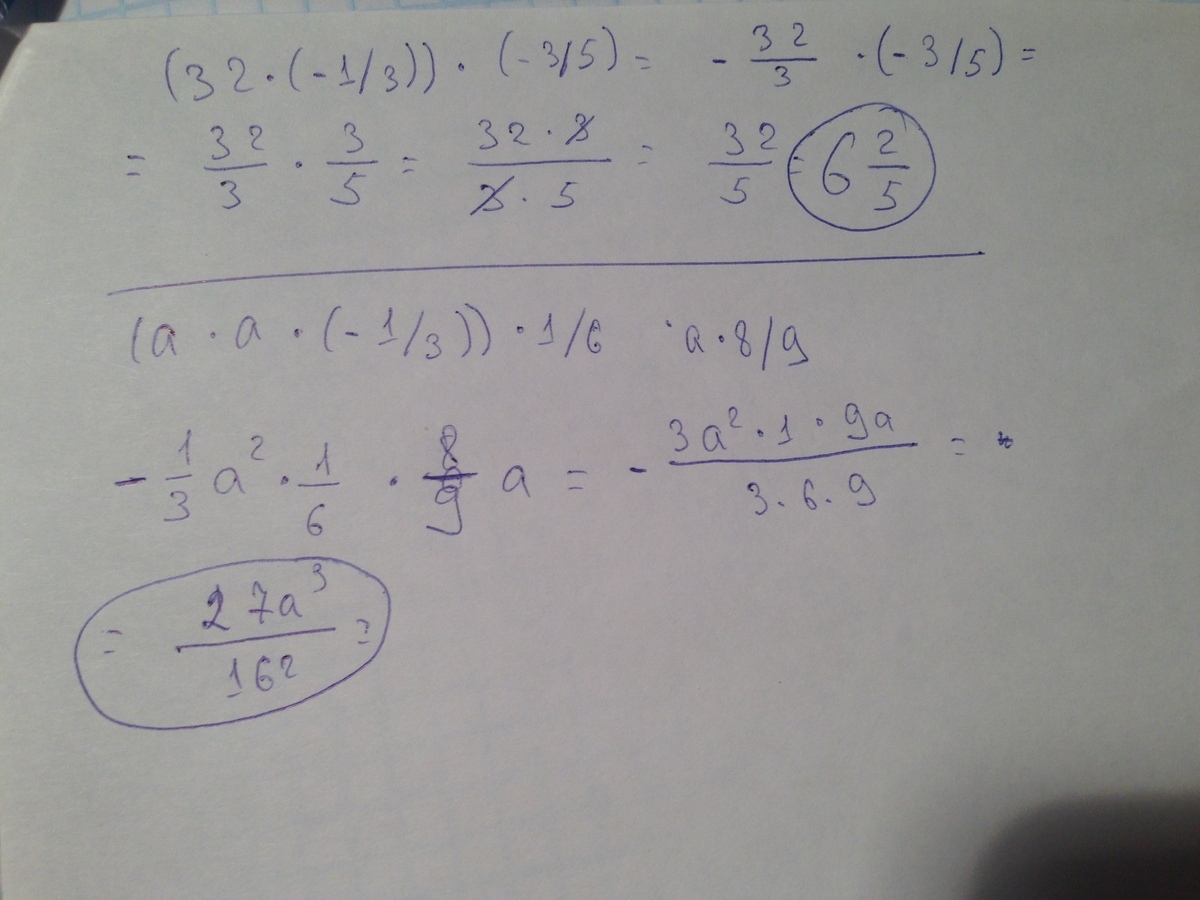 (32·(-1/3))·(-3/5)= -32/3·(-3/5)=
= 32/3 · 3/5 = 32·3/3·5 = 32/5 = 6 2/5
(a·a·(-1/3))·1/6 ·a·8/9
-1/3 a²·1/6 · 8/9 a = - 3a²·1·9a/3·6·9 =
= 27a³/162 =